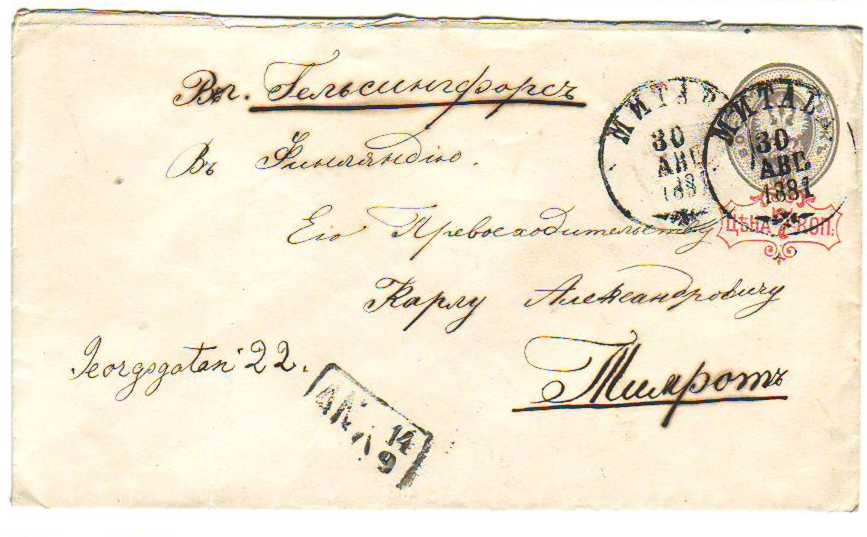 Въ г. Гельсингфорсъ
Въ Финляндію.
Его Превосходительству
Карлу Александровичу
Тимротъ
Georgsgatan 22.
МИТАВ
30
АВГ.
1881
МИТАВА
30
АВГ.
1881
ЦѢНА КОП.
АНК
14
9